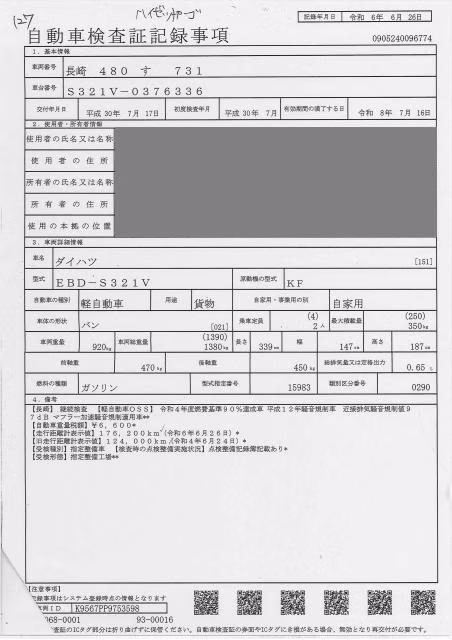 127 ハイゼットカーゴ
記録年月日 令和 6年 6月 26日
自動車検査証記録事項 0905240096774
1．基本情報
車両番号 長崎 480 す 731
車台番号 S321V-0376336
交付年月日 平成 30年 7月 17日 初度検査年月 平成 30年 7月 有効期間の満了する日 令和 8年 7月 16日
2．使用者・所有者情報
使用者の氏名又は名称
使用者の住所
所有者の氏名又は名称
所有者の住所
使用の本拠の位置
3．車両詳細情報
車名 ダイハツ [151]
型式 EBD-S321V 原動機の型式 KF
自動車の種別 軽自動車 用途 貨物 自家用・事業用の別 自家用
車体の形状 バン [021] 乗車定員 (4) 2人 最大積載量 (250) 350kg
車両重量 920kg 車両総重量 (1390) 1380kg 長さ 339cm 幅 147cm 高さ 187cm
前軸重 470kg 後軸重 450kg 総排気量又は定格出力 0.65 L
燃料の種類 ガソリン 型式指定番号 15983 類別区分番号 0290
4．備考
【長崎】 継続検査 【軽自動車OSS】 令和4年度燃費基準90%達成車 平成12年騒音規制車 近接排気騒音規制値9
7dB マフラー加速騒音規制適用車**
【自動車重量税額】￥6,600*
【走行距離計表示値】176,200km(令和6年6月26日)*
【旧走行距離計表示値】124,000km(令和4年6月24日)*
【受検種別】指定整備車 【検査時の点検整備実施状況】点検整備記録簿記載あり*
【受検形態】指定整備工場**
【注意事項】
記録事項はシステム登録時点の情報となります
車両ID K9567PP9753598
068-0001 93-00016
査証のICタグ部分は折り曲げずに保管ください。自動車検査証の券面やICタグに毀損がある場合、無効となり再交付が必要です。